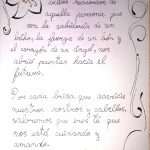 bellos recuerdos de
aquella persona que
con la sabiduría de un
búho, la fuerza de un león y
el corazón de un ángel, nos
abrió puertas hacia el
futuro.
Por cada brisa que acaricie
nuestros rostros y cabellos,
sabremos que eres tú que
nos está cuidando y
amando.